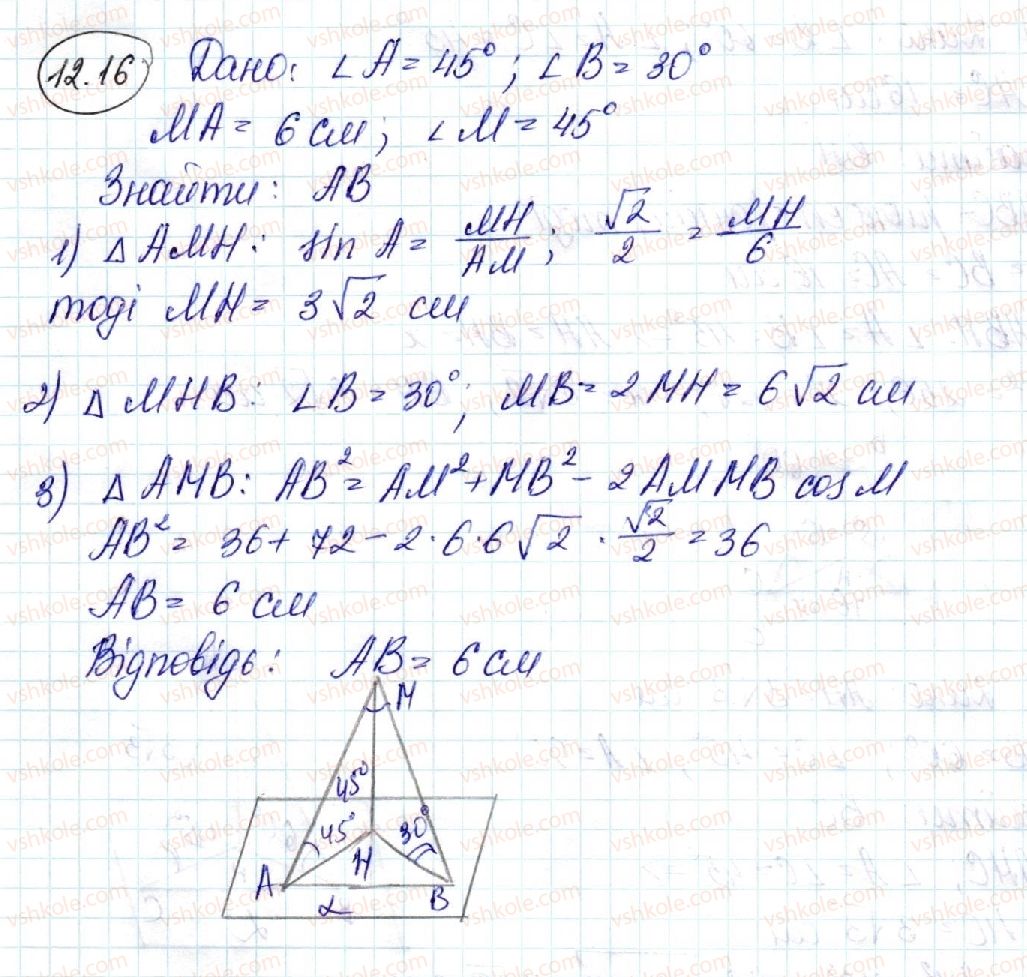 12.16 Дано: ∠A = 45°; ∠B = 30°
MA = 6 см; ∠M = 45°
Знайти: AB
1) △ AMH: sin A = MH/AM; √2/2 = MH/6
тоді MH = 3√2 см
2) △ MHB: ∠B = 30°; MB = 2MH = 6√2 см
3) △ AMB: AB² = AM² + MB² - 2AM MB cos M
AB² = 36 + 72 - 2·6·6√2 · √2/2 = 36
AB = 6 см
Відповідь: AB = 6 см
M
45°
45° 30°
H
A B
α